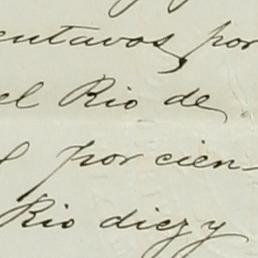 entavos, por
el Rio de
por cien-
Rio diez y